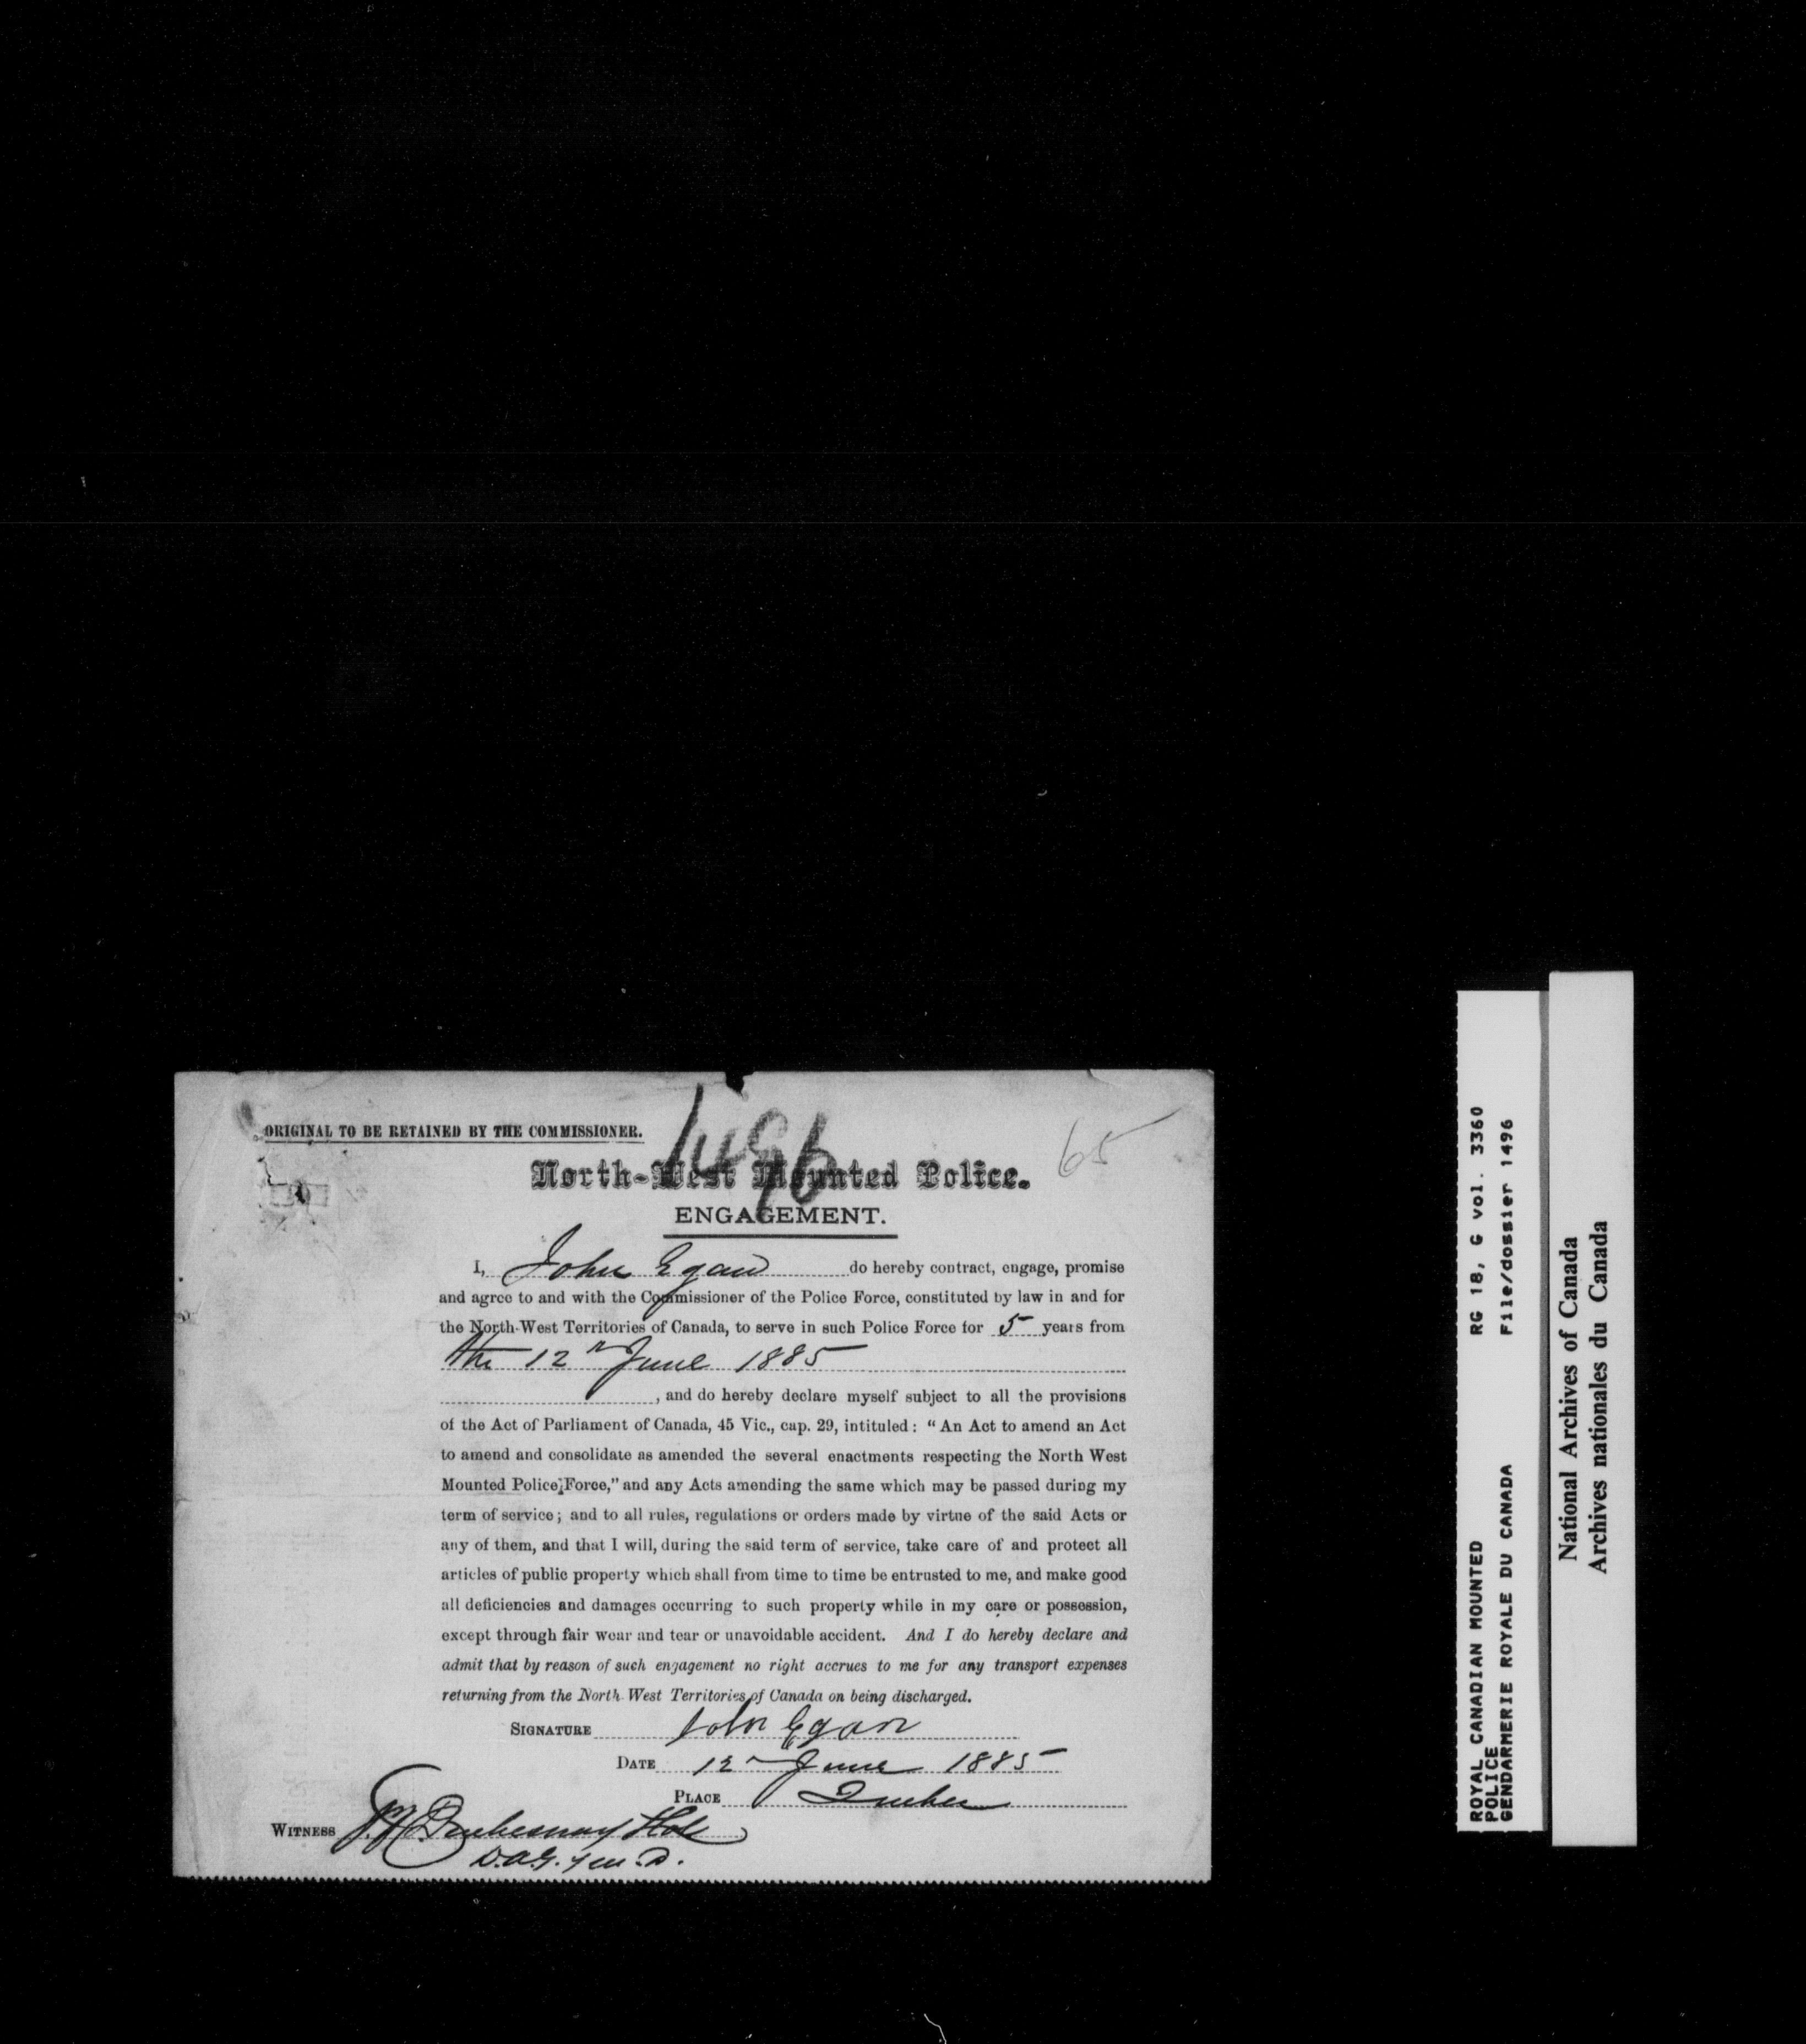 ORIGINAL TO BE RETAINED BY THE COMMISSIONER.
1496
65
North-West Mounted Police.
ENGAGEMENT.
I, John Egan do hereby contract, engage, promise
and agree to and with the Commissioner of the Police Force, constituted by law in and for
the North-West Territories of Canada, to serve in such Police Force for 5 years from
the 12th June 1885
, and do hereby declare myself subject to all the provisions
of the Act of Parliament of Canada, 45 Vic., cap. 29, intituled: "An Act to amend an Act
to amend and consolidate as amended the several enactments respecting the North West
Mounted Police Force," and any Acts amending the same which may be passed during my
term of service; and to all rules, regulations or orders made by virtue of the said Acts or
any of them, and that I will, during the said term of service, take care of and protect all
articles of public property which shall from time to time be entrusted to me, and make good
all deficiencies and damages occurring to such property while in my care or possession,
except through fair wear and tear or unavoidable accident. And I do hereby declare and
admit that by reason of such engagement no right accrues to me for any transport expenses
returning from the North West Territories of Canada on being discharged.
SIGNATURE John Egan
DATE 12 June 1885
PLACE Quebec
WITNESS
ROYAL CANADIAN MOUNTED RG 18, G vol. 3360
POLICE
GENDARMERIE ROYALE DU CANADA File/dossier 1496
National Archives of Canada
Archives nationales du Canada